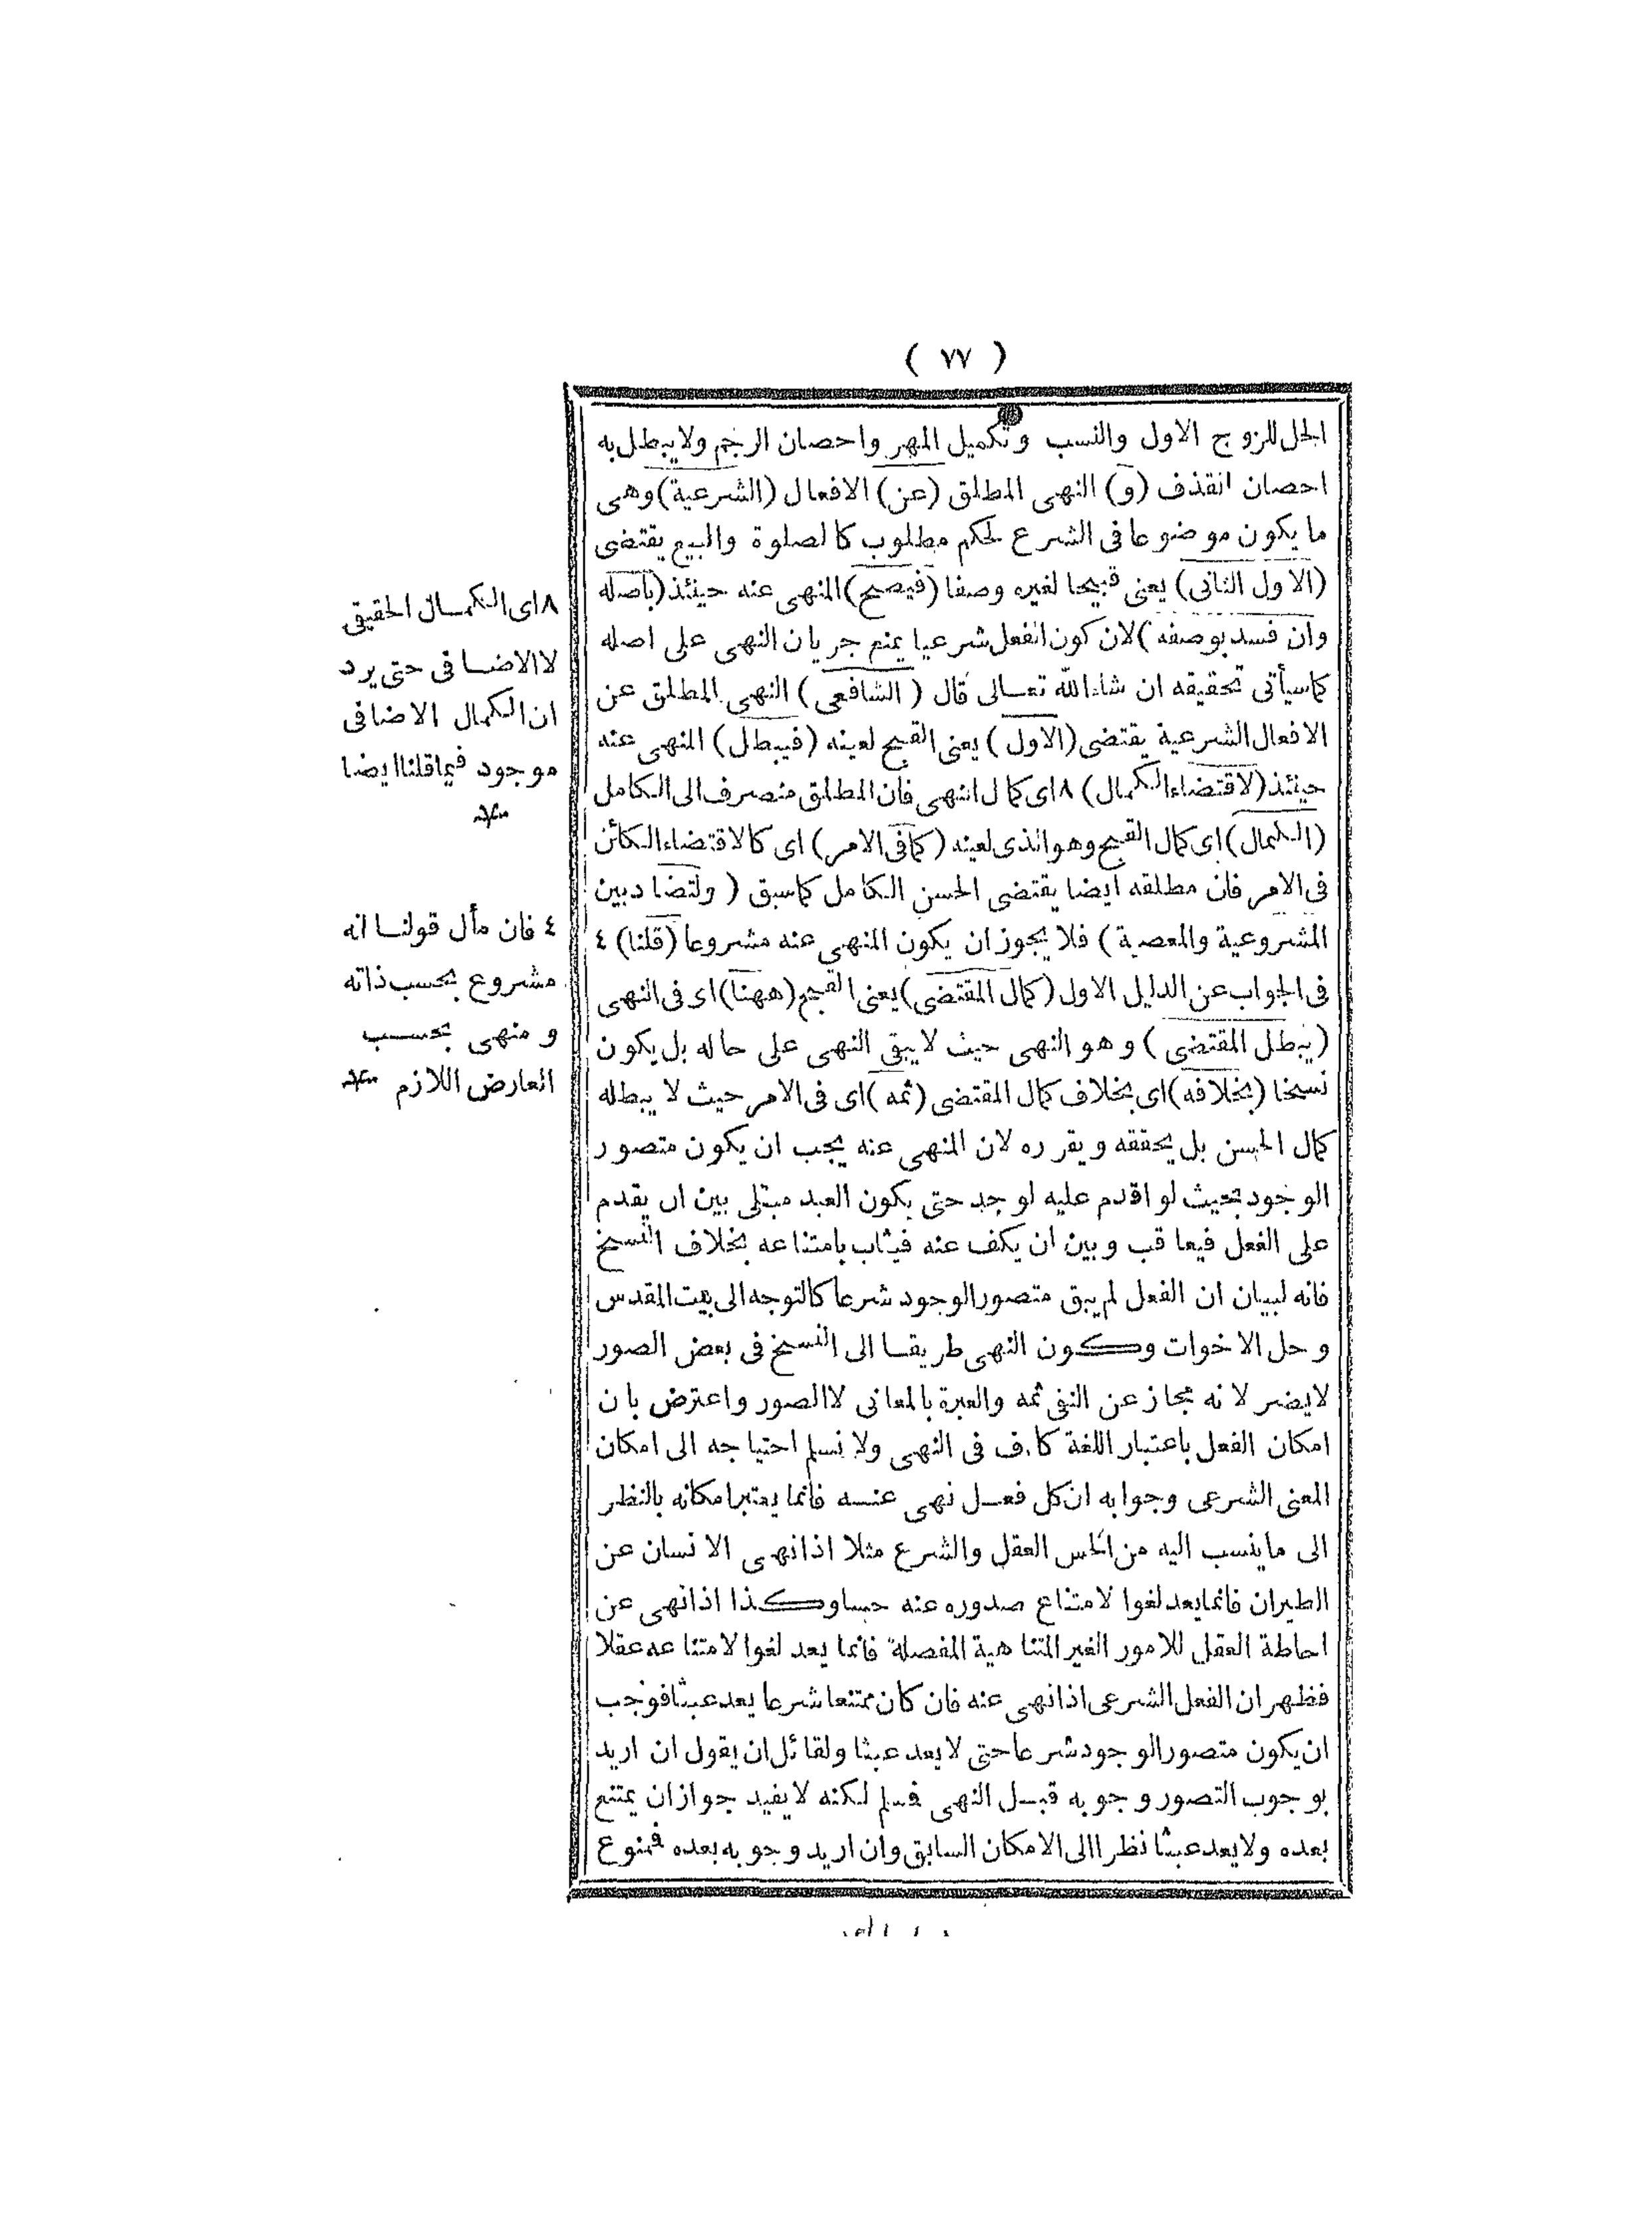 ( ٧٧ )
الحل للزوج الاول والنسب وتكميل المهر واحصان الرجم ولا يبطل به
احصان القذف (و) النهى المطلق (عن) الافعال (الشرعية) وهى
ما يكون موضوعا فى الشرع لحكم مطلوب كالصلوة والبيع يقتضى
(الاول الثانى) يعنى قبيحا لغيره وصفا (فيصح) المنهى عنه حينئذ (باصله
وان فسد بوصفه) لان كون الفعل شرعيا يمنع جريان النهى على اصله
كما سيأتى تحقيقه ان شاء الله تعالى قال (الشافعى) النهى المطلق عن
الافعال الشرعية يقتضى (الاول) يعنى القبح لعينه (فيبطل) المنهى عنه
حينئذ (لاقتضاء الكمال) ٨ اى كمال النهى فان المطلق منصرف الى الكامل
(الكمال) اى كمال القبح وهو الذى لعينه (كما فى الامر) اى كالاقتضاء الكائن
فى الامر فان مطلقه ايضا يقتضى الحسن الكامل كما سبق (ولتضاد بين
المشروعية والمعصية) فلا يجوز ان يكون المنهى عنه مشروعا (قلنا) ٤
فى الجواب عن الدليل الاول (كمال المقتضى) يعنى القبح (ههنا) اى فى النهى
(يبطل المقتضى) وهو النهى حيث لا يبقى النهى على حاله بل يكون
نسخا (بخلافه) اى بخلاف كمال المقتضى (ثمه) اى فى الامر حيث لا يبطله
كمال الحسن بل يحققه ويقرره لان المنهى عنه يجب ان يكون متصور
الوجود بحيث لو اقدم عليه لوجد حتى يكون العبد مبتلى بين ان يقدم
على الفعل فيعاقب وبين ان يكف عنه فيثاب بامتناعه بخلاف النسخ
فانه لبيان ان الفعل لم يبق متصور الوجود شرعا كالتوجه الى بيت المقدس
وحل الاخوات وكون النهى طريقا الى النسخ فى بعض الصور
لا يضر لانه مجاز عن النفى ثمه والعبرة بالمعانى لا الصور واعترض بان
امكان الفعل باعتبار اللغة كاف فى النهى ولا نسلم احتياجه الى امكان
المعنى الشرعى وجوابه ان كل فعل نهى عنه فانما يعتبر امكانه بالنظر
الى ما ينسب اليه من الحس العقل والشرع مثلا اذا نهى الانسان عن
الطيران فانما يعد لغوا لامتناع صدوره عنه حسا وكذا اذا نهى عن
احاطة العقل للامور الغير المتناهية المفصلة فانما يعد لغوا لامتناعه عقلا
فظهر ان الفعل الشرعى اذا نهى عنه فان كان ممتنعا شرعا يعد عبثا فوجب
ان يكون متصور الوجود شرعا حتى لا يعد عبثا ولقائل ان يقول ان اريد
بوجوب التصور وجوبه قبل النهى فسلم لكنه لا يفيد جواز ان يمتنع
بعده ولا يعد عبثا نظرا الى الامكان السابق وان اريد وجوبه بعده فممنوع
٨ اى الكمال الحقيقى
لا الاضافى حتى يرد
ان الكمال الاضافى
موجود فيما قلنا ايضا
٤ فان مأل قولنا انه
مشروع بحسب ذاته
و منهى بحسب
العارض اللازم